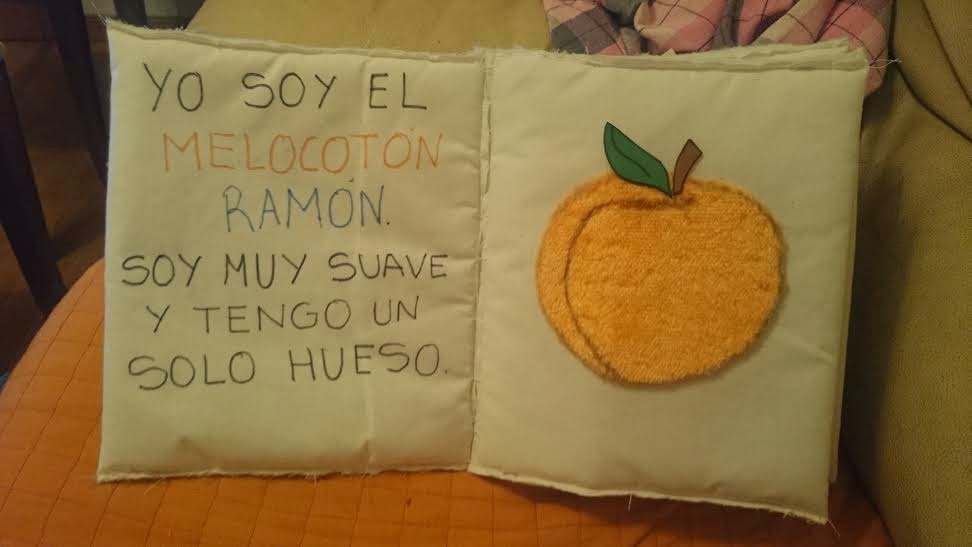 YO SOY EL
MELOCOTÓN
RAMÓN.
SOY MUY SUAVE
Y TENGO UN
SOLO HUESO.